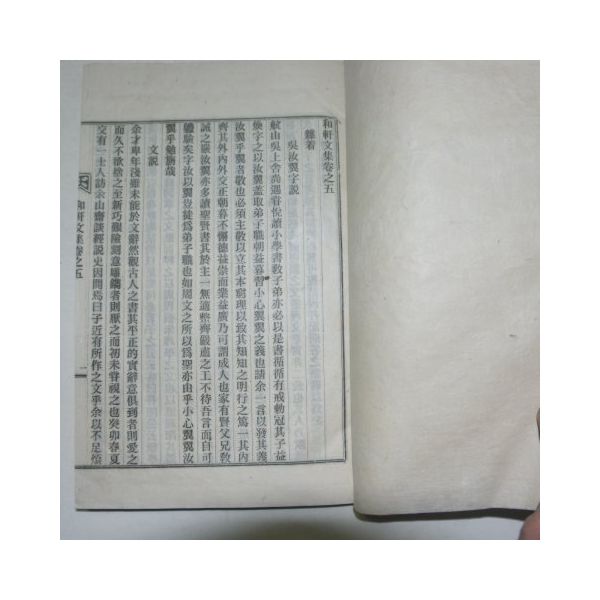 和軒文集卷之五
雜著
吳汝翼字說
航山吳上舍尚遇眷悅讀小學書敎子弟亦必以是書循循有戒勅冠其子益
煥字之以汝翼蓋取弟子職朝益暮習小心翼翼之義也請余一言以發其義
汝翼乎翼者敬也必須主敬以立其本窮理以致其知知之明行之篤一其內
齊其外內外交正朝暮不懈德益崇而業益廣乃可謂成人也家有賢父兄敎
誠之嚴汝翼亦多讀聖賢書其於主一無適整齊嚴肅之工不待吾言而自可
體驗矣字汝以翼豈徒爲弟子職也如周文之所以爲聖亦由乎小心翼翼汝
翼乎勉旃哉
文說
余才卑年淺雖未能於文辭然觀古人之書其平正的實辭意俱到者則愛之
而久不欲捨之至新巧艱險刻意雕鐫者則厭之而初未嘗視之也癸卯春夏
交有一士人訪余山齋談經說史因問焉曰子近有所作之文乎余以不足燒
和軒文集卷之五
一